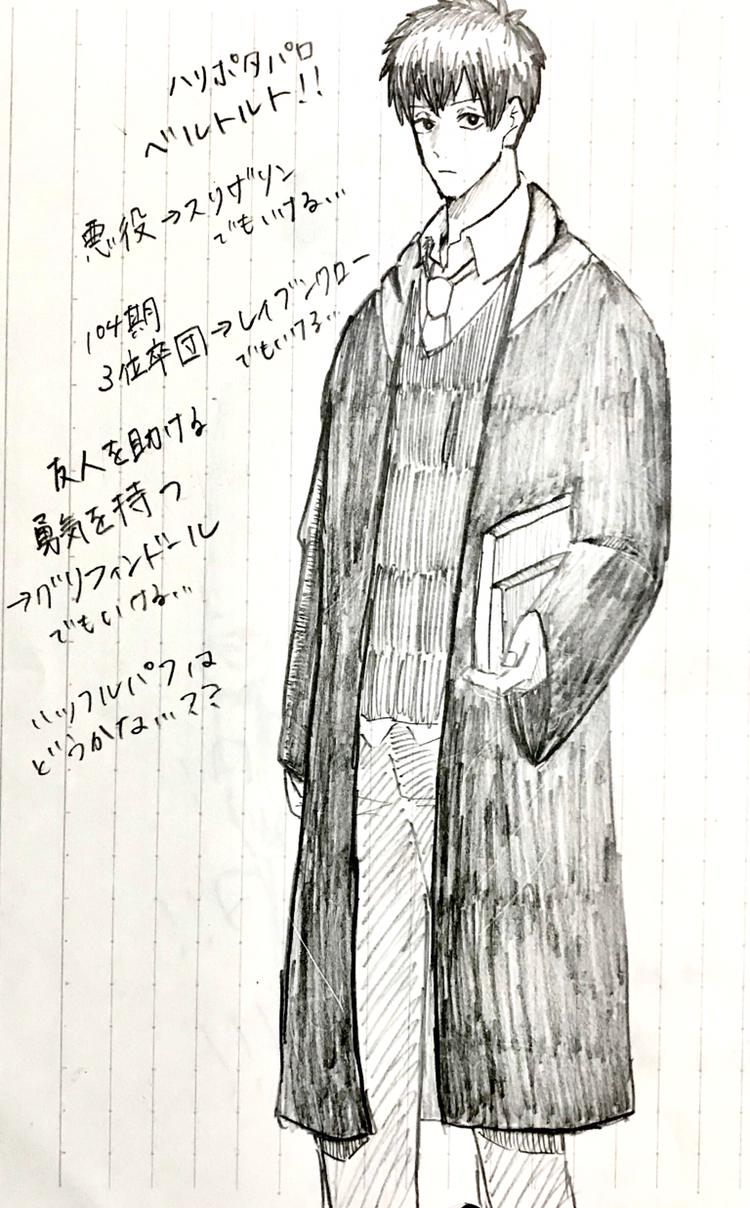 ハリポタパロ
ベルトルト!!
悪役→スリザリン
でもいける…
104期
3位卒団→レイブンクロー
でもいける…
友人を助ける
勇気を持つ
→グリフィンドール
でもいける…
ハッフルパフは
どうかな…??